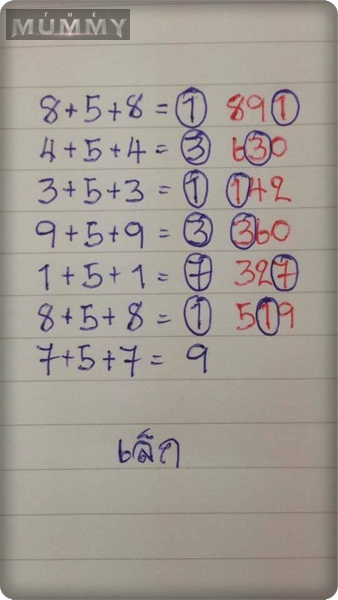 THE
MUMMY
8+5+8 = 1 891
4+5+4 = 3 630
3+5+3 = 1 142
9+5+9 = 3 360
1+5+1 = 7 327
8+5+8 = 1 519
7+5+7 = 9
เล็ก